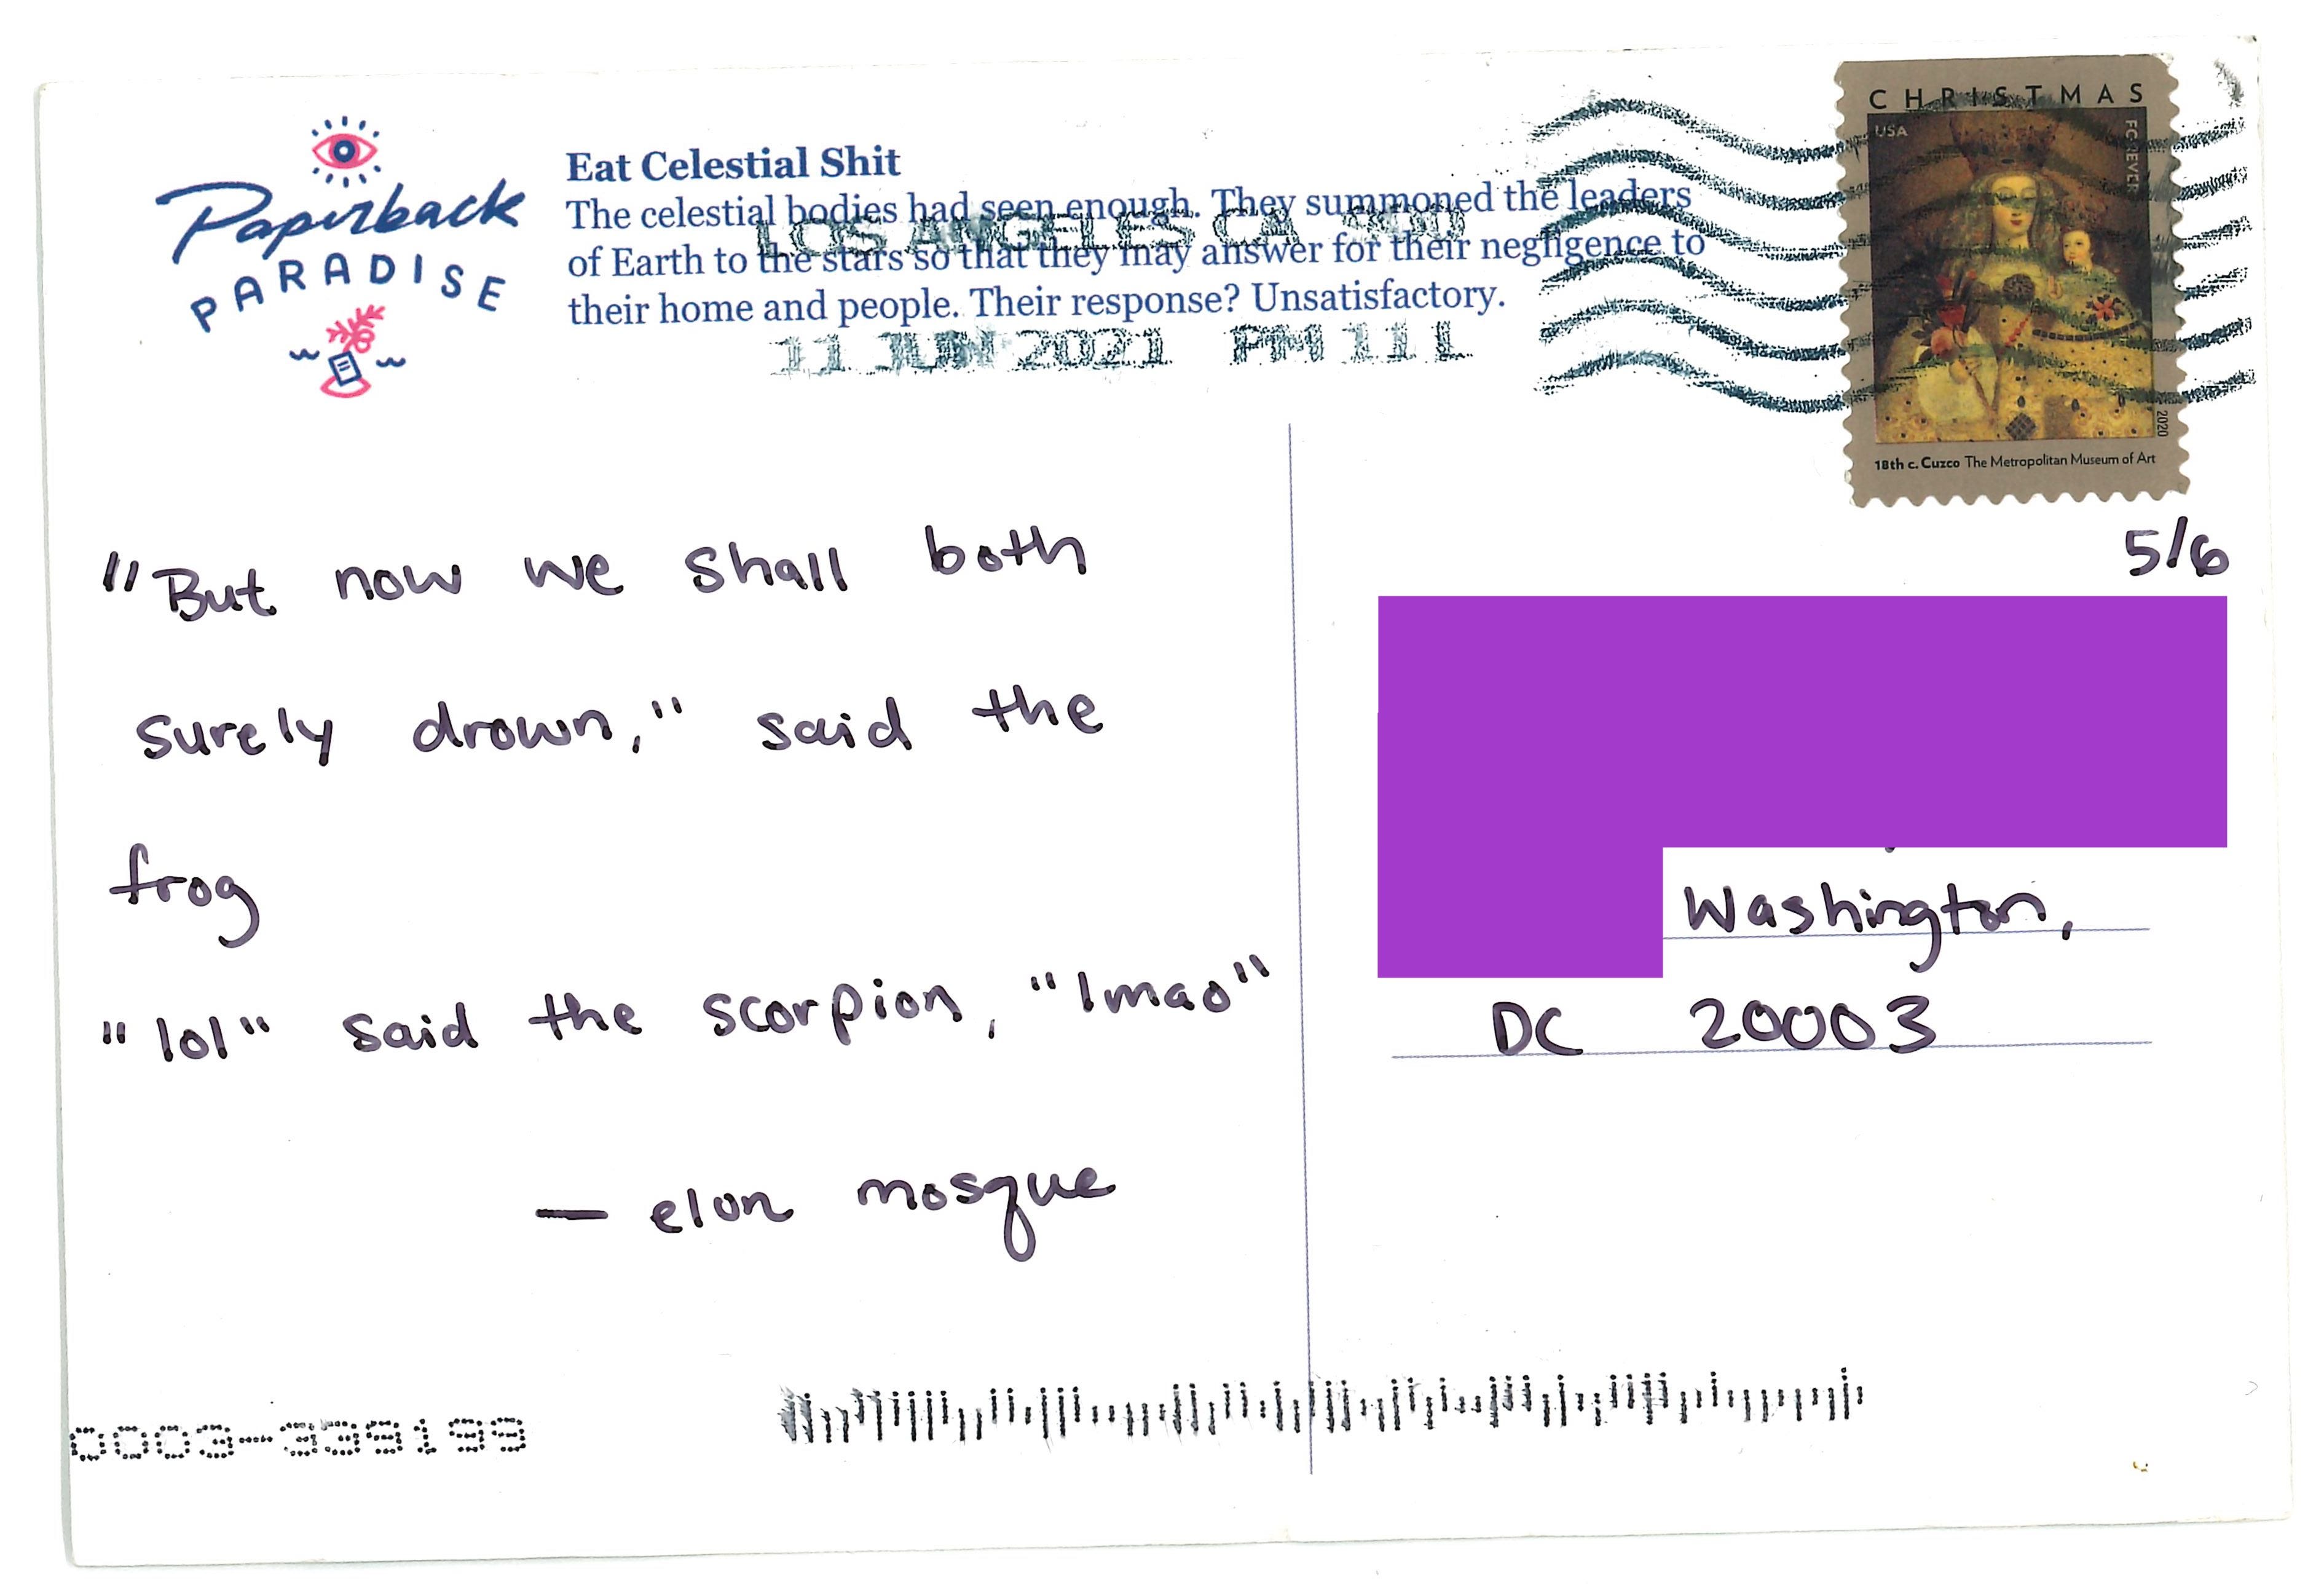 Paperback
PARADISE
Eat Celestial Shit
The celestial bodies had seen enough. They summoned the leaders
of Earth to the stars so that they may answer for their negligence to
their home and people. Their response? Unsatisfactory.
LOS ANGELES CA 900
11 JUN 2021 PM 11 L
CHRISTMAS
USA
FOREVER
2020
18th c. Cuzco The Metropolitan Museum of Art
"But now we shall both
surely drown," said the
frog
"lol" said the scorpion, "lmao"
— elon mosque
5/6
Washington,
DC 20003
0003-339199